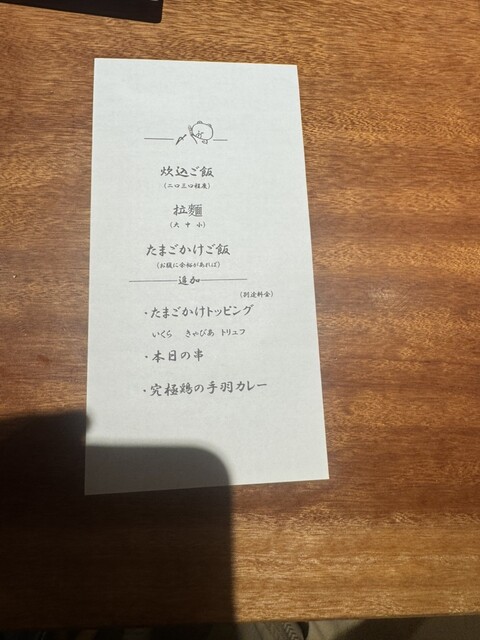 炊込ご飯
(二口三口程度)
拉麺
(大 中 小)
たまごかけご飯
(お腹に余裕があれば)
追加
(別途料金)
・たまごかけトッピング
いくら きゃびあ トリュフ
・本日の串
・究極鶏の手羽カレー